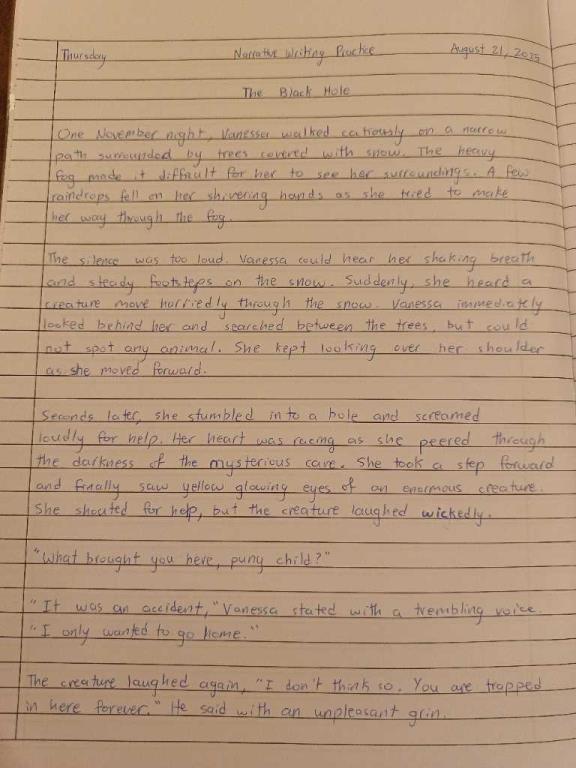 Thursday Narrative Writing Practice August 21, 2025
The Black Hole
One November night, Vanessa walked catiously on a narrow
path surrounded by trees covered with snow. The heavy
fog made it difficult for her to see her surroundings. A few
raindrops fell on her shivering hands as she tried to make
her way through the fog.
The silence was too loud. Vanessa could hear her shaking breath
and steady footsteps on the snow. Suddenly, she heard a
creature move hurriedly through the snow. Vanessa immediately
looked behind her and searched between the trees, but could
not spot any animal. She kept looking over her shoulder
as she moved forward.
Seconds later, she stumbled into a hole and screamed
loudly for help. Her heart was racing as she peered through
the darkness of the mysterious cave. She took a step forward
and finally saw yellow glowing eyes of an enormous creature.
She shouted for help, but the creature laughed wickedly.
"What brought you here, puny child?"
"It was an accident," Vanessa stated with a trembling voice.
"I only wanted to go home."
The creature laughed again, "I don't think so. You are trapped
in here forever." He said with an unpleasant grin.